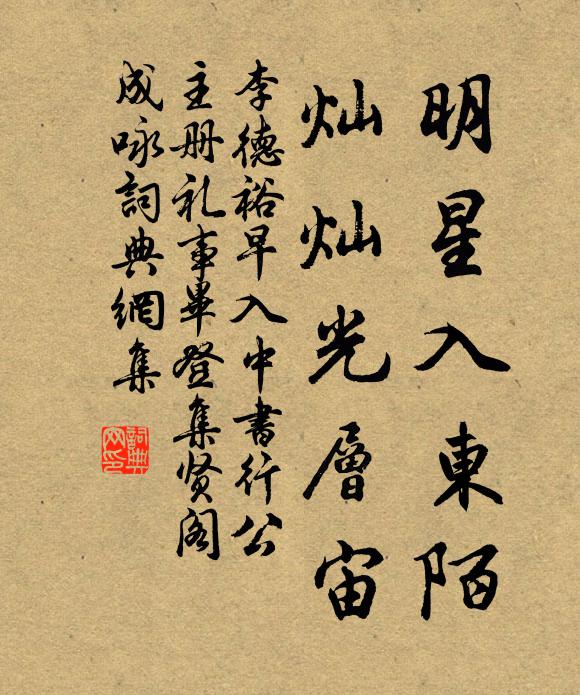 明星入東陌
灿灿光層宙
李德裕早入中書行公
主册礼事畢登集贤阁
成咏詞典網集
詞典网印